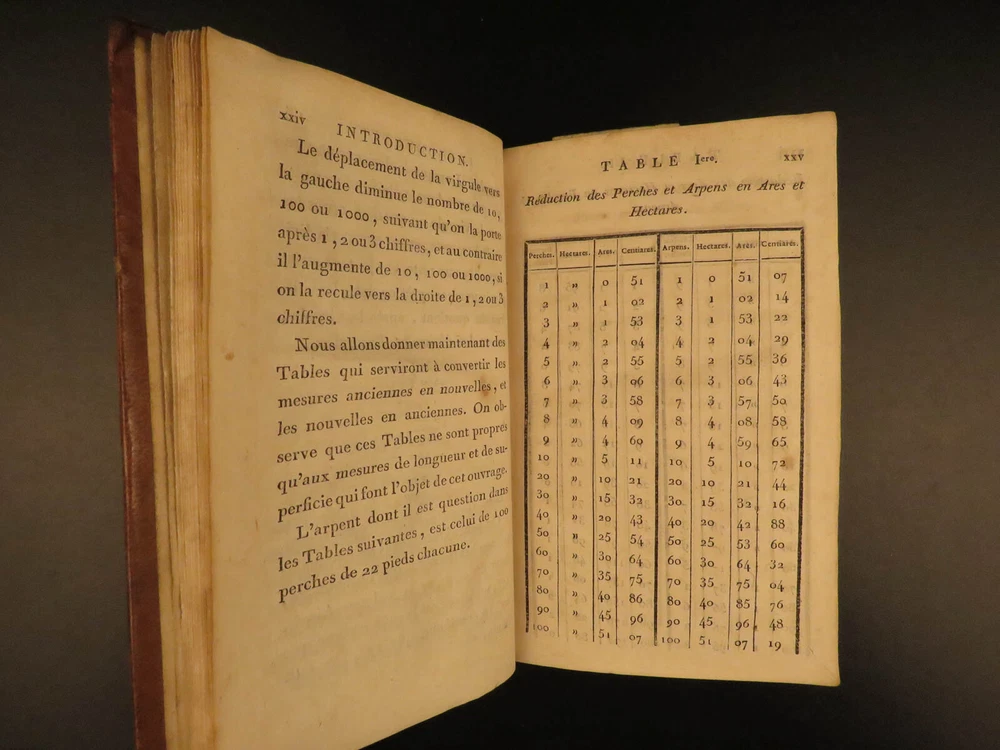 xxiv INTRODUCTION.
Le déplacement de la virgule vers
la gauche diminue le nombre de 10,
100 ou 1000, suivant qu'on la porte
après 1, 2 ou 3 chiffres, et au contraire
il l'augmente de 10, 100 ou 1000, si
on la recule vers la droite de 1, 2 ou 3
chiffres.
Nous allons donner maintenant des
Tables qui serviront à convertir les
mesures anciennes en nouvelles, et
les nouvelles en anciennes. On ob-
serve que ces Tables ne sont propres
qu'aux mesures de longueur et de su-
perficie qui font l'objet de cet ouvrage.
L'arpent dont il est question dans
les Tables suivantes, est celui de 100
perches de 22 pieds chacune.
TABLE Iere. xxv
Réduction des Perches et Arpens en Ares et
Hectares.
Perches. Hectares. Ares. Centiares. Arpens. Hectares. Ares. Centiares.
1 " 0 51 1 0 51 07
2 " 1 02 2 1 02 14
3 " 1 53 3 1 53 22
4 " 2 04 4 2 04 29
5 " 2 55 5 2 55 36
6 " 3 06 6 3 06 43
7 " 3 58 7 3 57 50
8 " 4 09 8 4 08 58
9 " 4 60 9 4 59 65
10 " 5 11 10 5 10 72
20 " 10 21 20 10 21 44
30 " 15 32 30 15 32 16
40 " 20 43 40 20 42 88
50 " 25 54 50 25 53 60
60 " 30 64 60 30 64 32
70 " 35 75 70 35 75 04
80 " 40 86 80 40 85 76
90 " 45 96 90 45 96 48
100 " 51 07 100 51 07 19